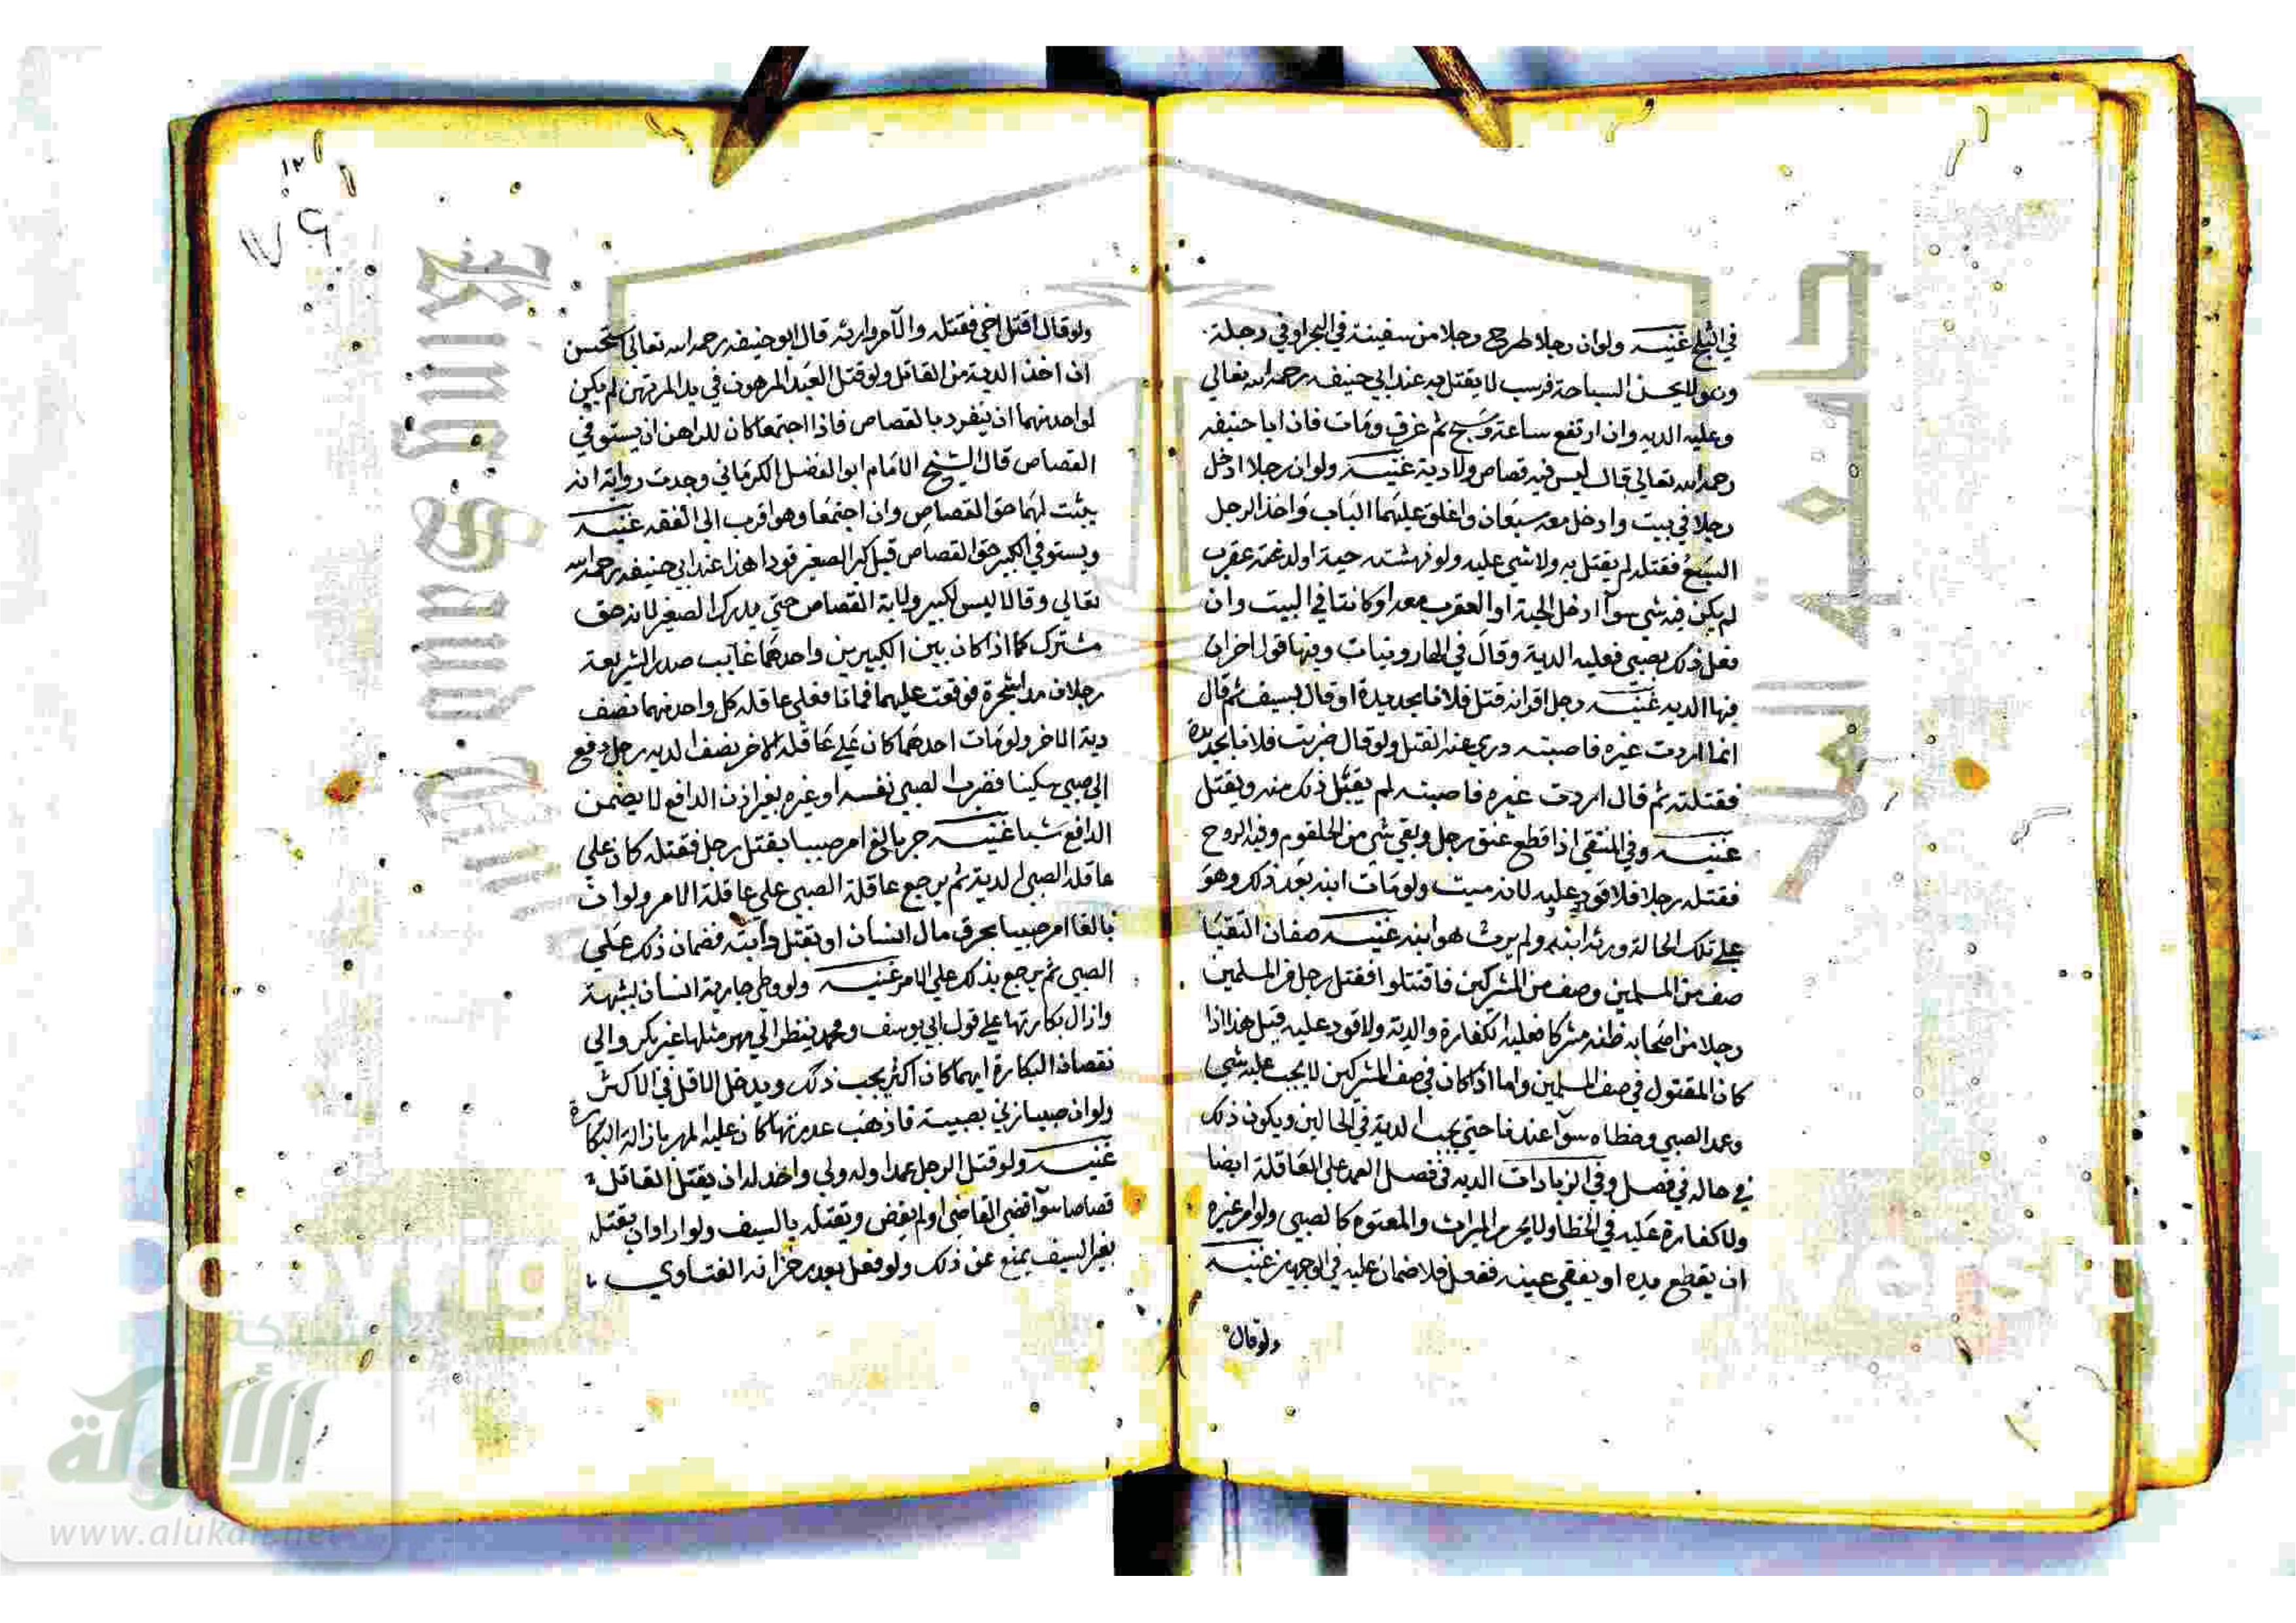 في الثلج غنيه ولو ان رجلا طرح رجلا من سفينة في البحر او في دجلة
وهو لا يحسن السباحة فرسب لا يقتل به عند ابي حنيفه رحمه الله تعالي
وعليه الديه وان ارتفع ساعة وسبح ثم غرق ومات فان ابا حنيفه
رحمه الله تعالي قال ليس فيه قصاص ولا دية غنيه ولو ان رجلا ادخل
رجلا في بيت وادخل معه سبعا واغلق عليهما الباب واخذ الرجل
السبع فقتله لم يقتل به ولا شي عليه ولو نهشته حية او لدغته عقرب
لم يكن فيه شي سوآ ادخل الحية او العقرب معه او كانتا في البيت وان
فعل ذلك بصبي فعليه الدية وقال في الهارونيات وفيها قول اخر ان
فيها الديه غنيه رجل اقر انه قتل فلانا بحديدة او قال بسيف ثم قال
انما اردت غيره فاصبته دري عنه القتل ولو قال ضربت فلانا بحديدة
فقتلته ثم قال اردت غيره فاصبته لم يقبل ذلك منه ويقتل
غنيه وفي المنتقي اذا قطع عنق رجل وبقي شي من الحلقوم وفيه الروح
فقتله رجل فلا قود عليه لانه ميت ولو مات ابنه بعد ذلك وهو
علي تلك الحالة ورثه ابنه ولم يرث هو ابنه غنيه صفان التقيا
صف من المسلمين وصف من المشركين فاقتتلوا فقتل رجل من المسلمين
رجلا من اصحابه ظنه مشركا فعليه الكفارة والدية ولا قود عليه قيل هذا اذا
كان المقتول في صف المسلمين واما اذا كان في صف المشركين لا يجب عليه شي
وعمد الصبي وخطاه سوآ عندنا حتي يجب الدية في الحالين ويكون ذلك
في ماله في فصل وفي الزيادات الديه في فصل العمد علي العاقلة ايضا
ولا كفارة عليه في الخطا ولا يحرم الميراث والمعتوه كالصبي ولو امر غيره
ان يقطع يده او يفقي عينه ففعل فلا ضمان عليه في الوجهين غنيه
ولو قال
١٢
٧٩
ولو قال اقتل اخي فقتله والآمر وارثه قال ابو حنيفه رحمه الله تعالي استحسن
ان اخذ الدية من القاتل ولو قتل العبد المرهون في يد المرتهن لم يكن
لواحد منهما ان ينفرد بالقصاص فاذا اجتمعا كان للراهن ان يستوفي
القصاص قال الشيخ الامام ابو الفضل الكرماني وجدت رواية انه
يثبت لهما حق القصاص وان اجتمعا وهو اقرب الي الفقه غنيه
ويستوفي الكبير حق القصاص قبل كبر الصغير قودا هذا عند ابي حنيفه رحمه الله
تعالي وقالا ليس لكبير ولاية القصاص حتي يدرك الصغير لانه حق
مشترك كما اذا كان بين الكبيرين واحدهما غايب صدر الشريعة
رجلان مدا شجرة فوقعت عليهما فماتا فعلي عاقله كل واحد منهما نصف
دية الاخر ولو مات احدهما كان علي عاقلة الاخر نصف الديه رجل دفع
الي صبي سكينا فضرب الصبي نفسه او غيره بغير اذن الدافع لا يضمن
الدافع شيا غنيه حر بالغ امر صبيا بقتل رجل فقتله كان علي
عاقلة الصبي الدية ثم يرجع عاقلة الصبي علي عاقلة الامر ولو ان
بالغا امر صبيا بحرق مال انسان او بقتل دآبته فضمان ذلك علي
الصبي ثم يرجع بذلك علي الامر غنيه ولو وطي جارية انسان بشبهة
وازال بكارتها علي قول ابي يوسف ومحمد ينظر الي مهر مثلها غير بكر والي
نقصان البكارة ايهما كان اكثر يجب ذلك ويدخل الاقل في الاكثر
ولو ان صبيا زني بصبية فاذهب عذرتها كان عليه المهر بازالة البكارة
غنيه ولو قتل الرجل عمدا وله ولي واحد له ان يقتل القاتل
قصاصا سوآ قضي القاضي او لم يقض ويقتله بالسيف ولو اراد ان يقتله
بغير السيف يمنع عن ذلك ولو فعل يعزر خزانه الفتاوي
شبكة
الألوكة
www.alukah.net